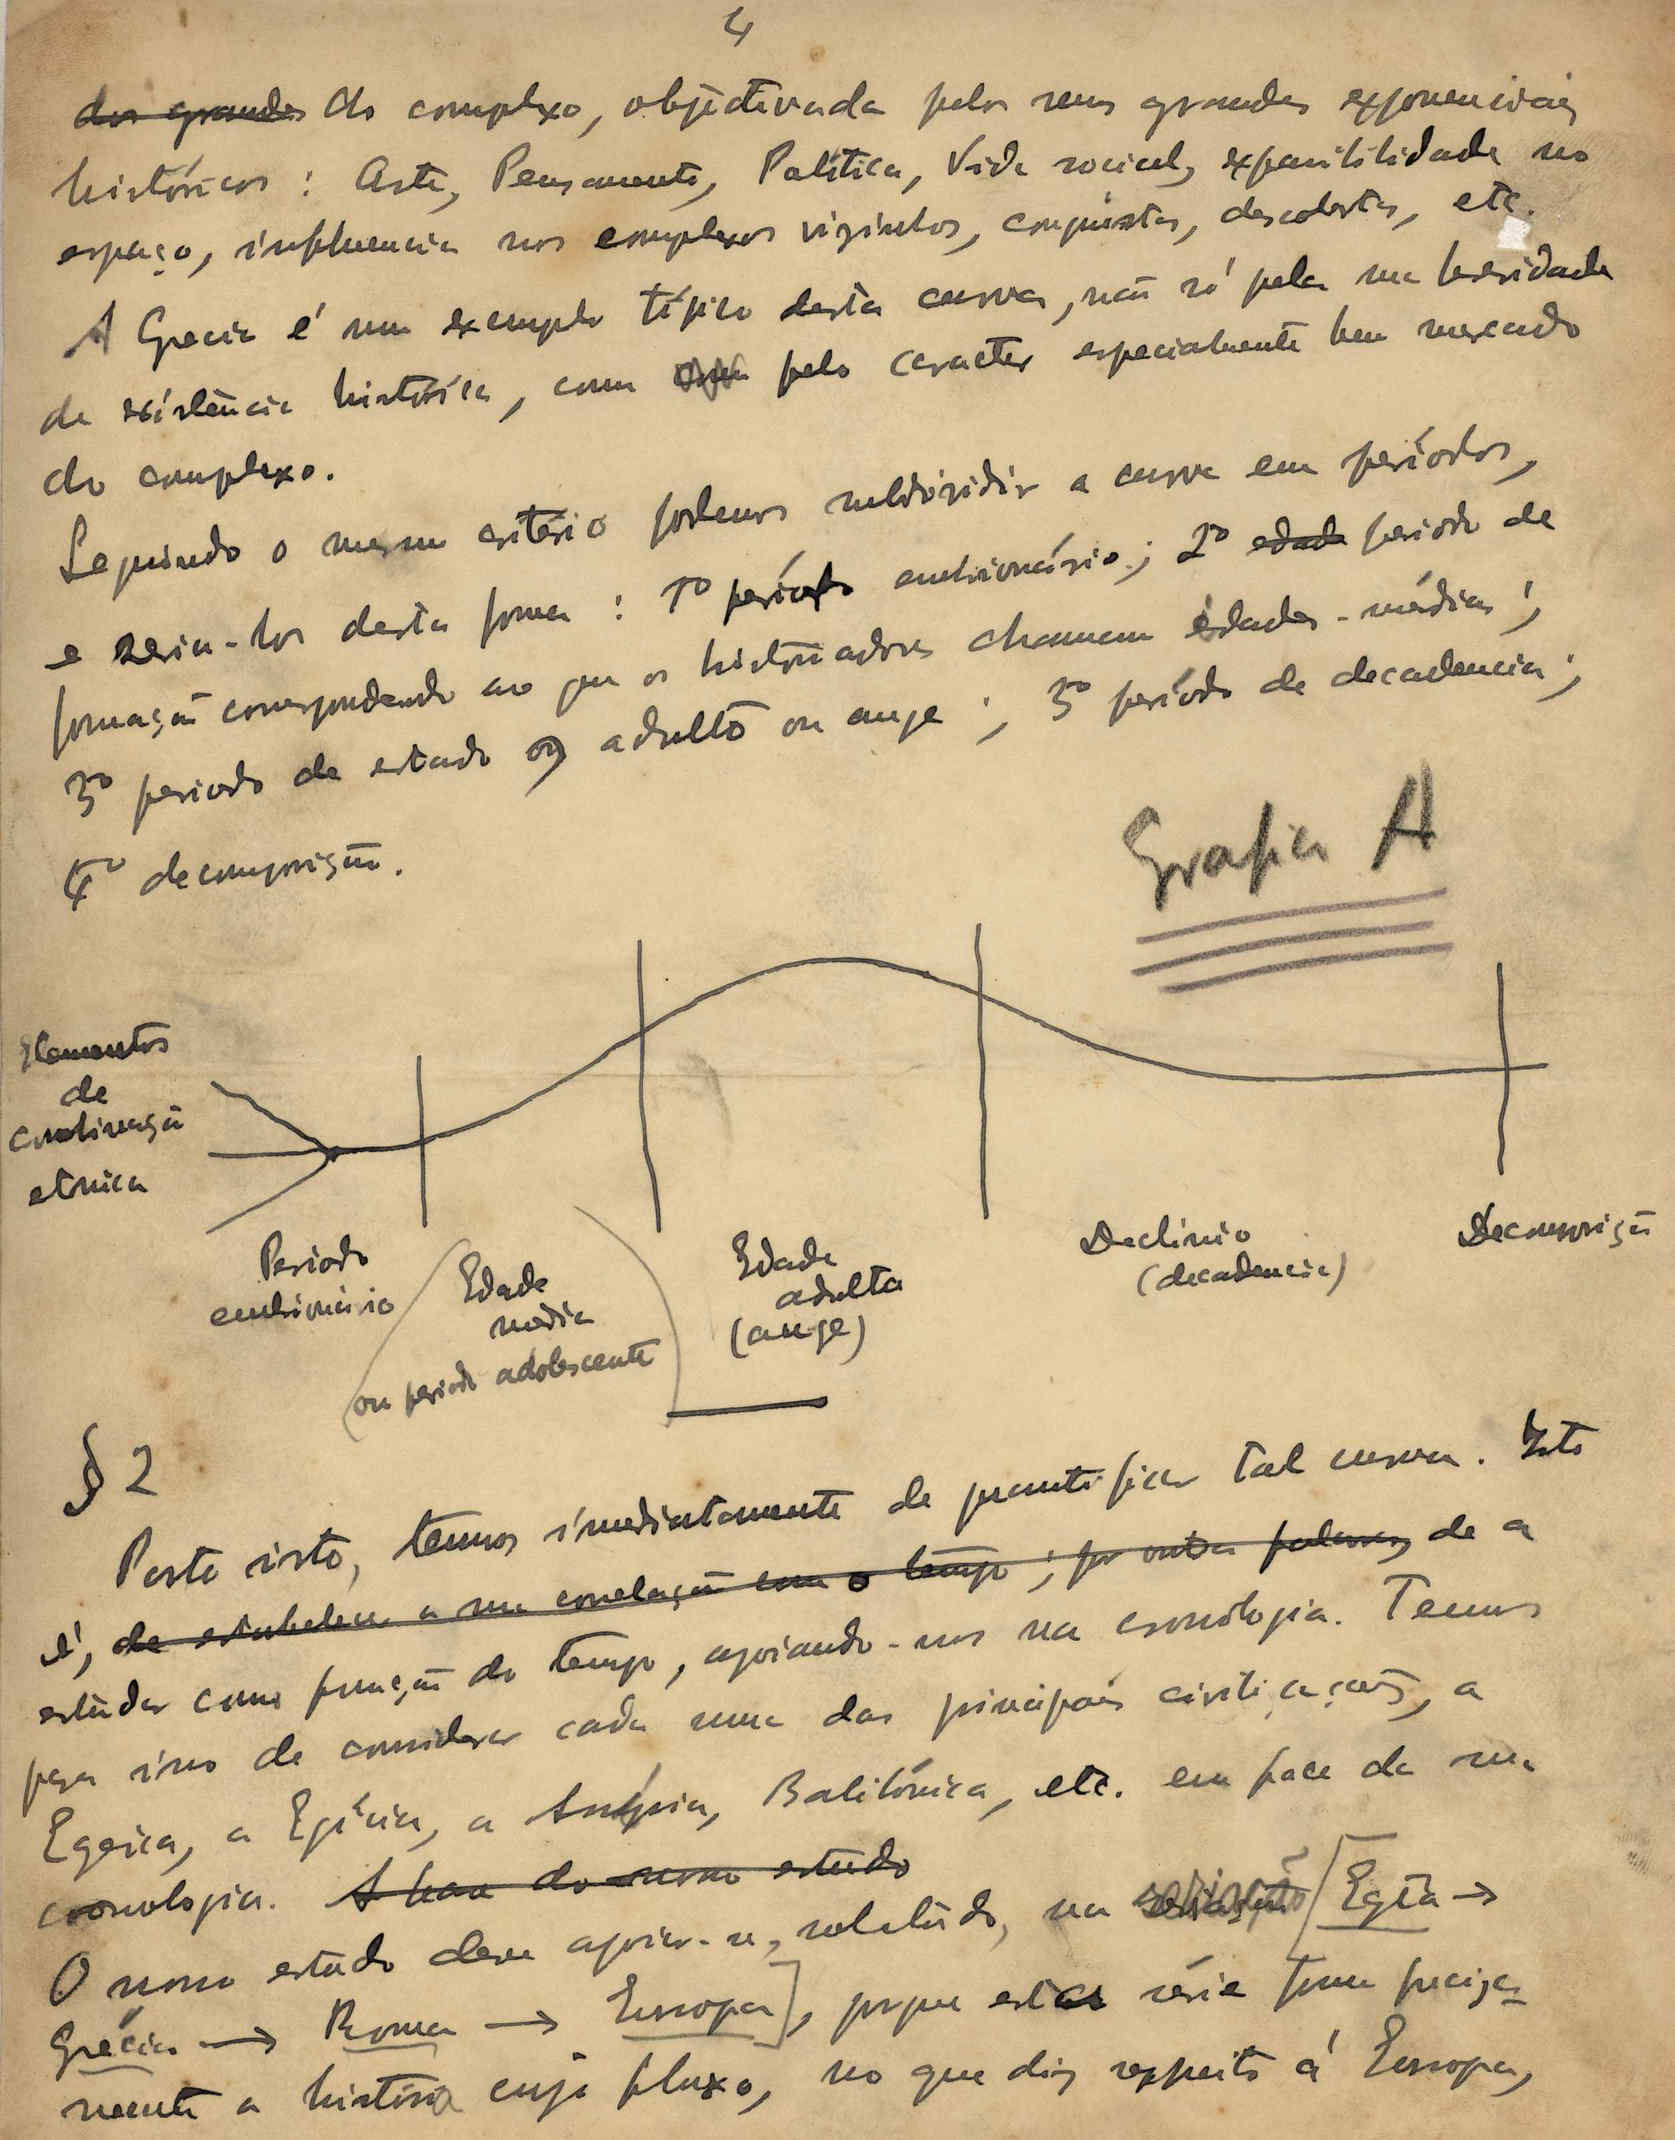 4
dos grandes do complexo, objectivada pelos seus grandes exponenciais
históricos : Arte, Pensamento, Política, Vida social, expansibilidade no
espaço, influencia nos complexos vizinhos, conquistas, descobertas, etc.
A Grecia é um exemplo típico desta curva, não só pela sua brevidade
de existência histórica, como pelo caracter especialmente bem marcado
do complexo.
Seguindo o mesmo critério podemos subdividir a curva em períodos,
e seria-los desta forma : 1º período embrionário ; 2º edade periodo de
formação correspondendo ao que os historiadores chamam edades-médias ;
3º periodo de estado ou adulto ou auge ; 3º período de decadencia ;
4º decomposição.
Grafico A
Elementos
de
combinação
etnica
Periodo
embrionário
Edade
media
ou periodo adolescente
Edade
adulta
(auge)
Declinio
(decadencia)
Decomposição
§ 2
Posto isto, temos imediatamente de quantificar tal curva. Isto
é, de estabelecer a sua correlação com o tempo ; por outras palavras, de a
estudar como função do tempo, apoiando-nos na cronologia. Temos
para isso de considerar cada uma das principais civilizações, a
Egeica, a Egícia, a Assíria, Babilónica, etc. em face da sua
cronologia. A base do nosso estudo
O nosso estudo deve apoiar-se, sobretudo, na seriação [Egito →
Grécia → Roma → Europa], porque esta série forma precisa-
mente a história cujo fluxo, no que diz respeito á Europa,